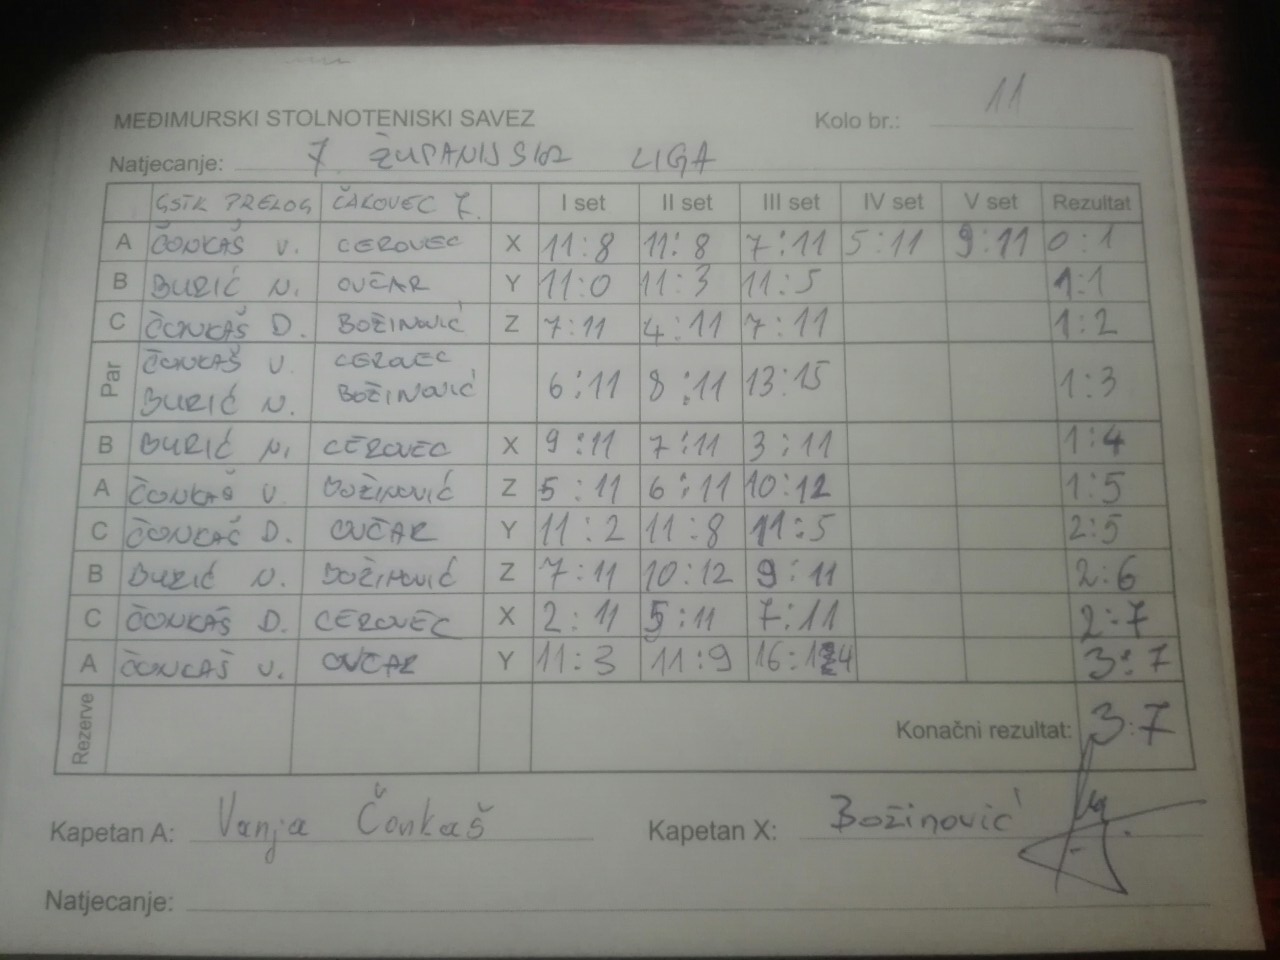 MEĐIMURSKI STOLNOTENISKI SAVEZ
Kolo br.: 11
Natjecanje: 7 ŽUPANIJSKA LIGA
GSTK PRELOG ČAKOVEC 7. I set II set III set IV set V set Rezultat
A ČONKAŠ V. CEROVEC X 11:8 11:8 7:11 5:11 9:11 0:1
B BURIĆ N. OVČAR Y 11:0 11:3 11:5 1:1
C ČONKAŠ D. BOŽINOVIĆ Z 7:11 4:11 7:11 1:2
Par ČONKAŠ V. CEROVEC
BURIĆ N. BOŽINOVIĆ 6:11 8:11 13:15 1:3
B BURIĆ N. CEROVEC X 9:11 7:11 3:11 1:4
A ČONKAŠ V. BOŽINOVIĆ Z 5:11 6:11 10:12 1:5
C ČONKAŠ D. OVČAR Y 11:2 11:8 11:5 2:5
B BURIĆ N. BOŽINOVIĆ Z 7:11 10:12 9:11 2:6
C ČONKAŠ D. CEROVEC X 2:11 5:11 7:11 2:7
A ČONKAŠ V. OVČAR Y 11:3 11:9 16:14 3:7
Rezerve Konačni rezultat: 3:7
Kapetan A: Vanja Čonkaš Kapetan X: Božinović
Natjecanje: